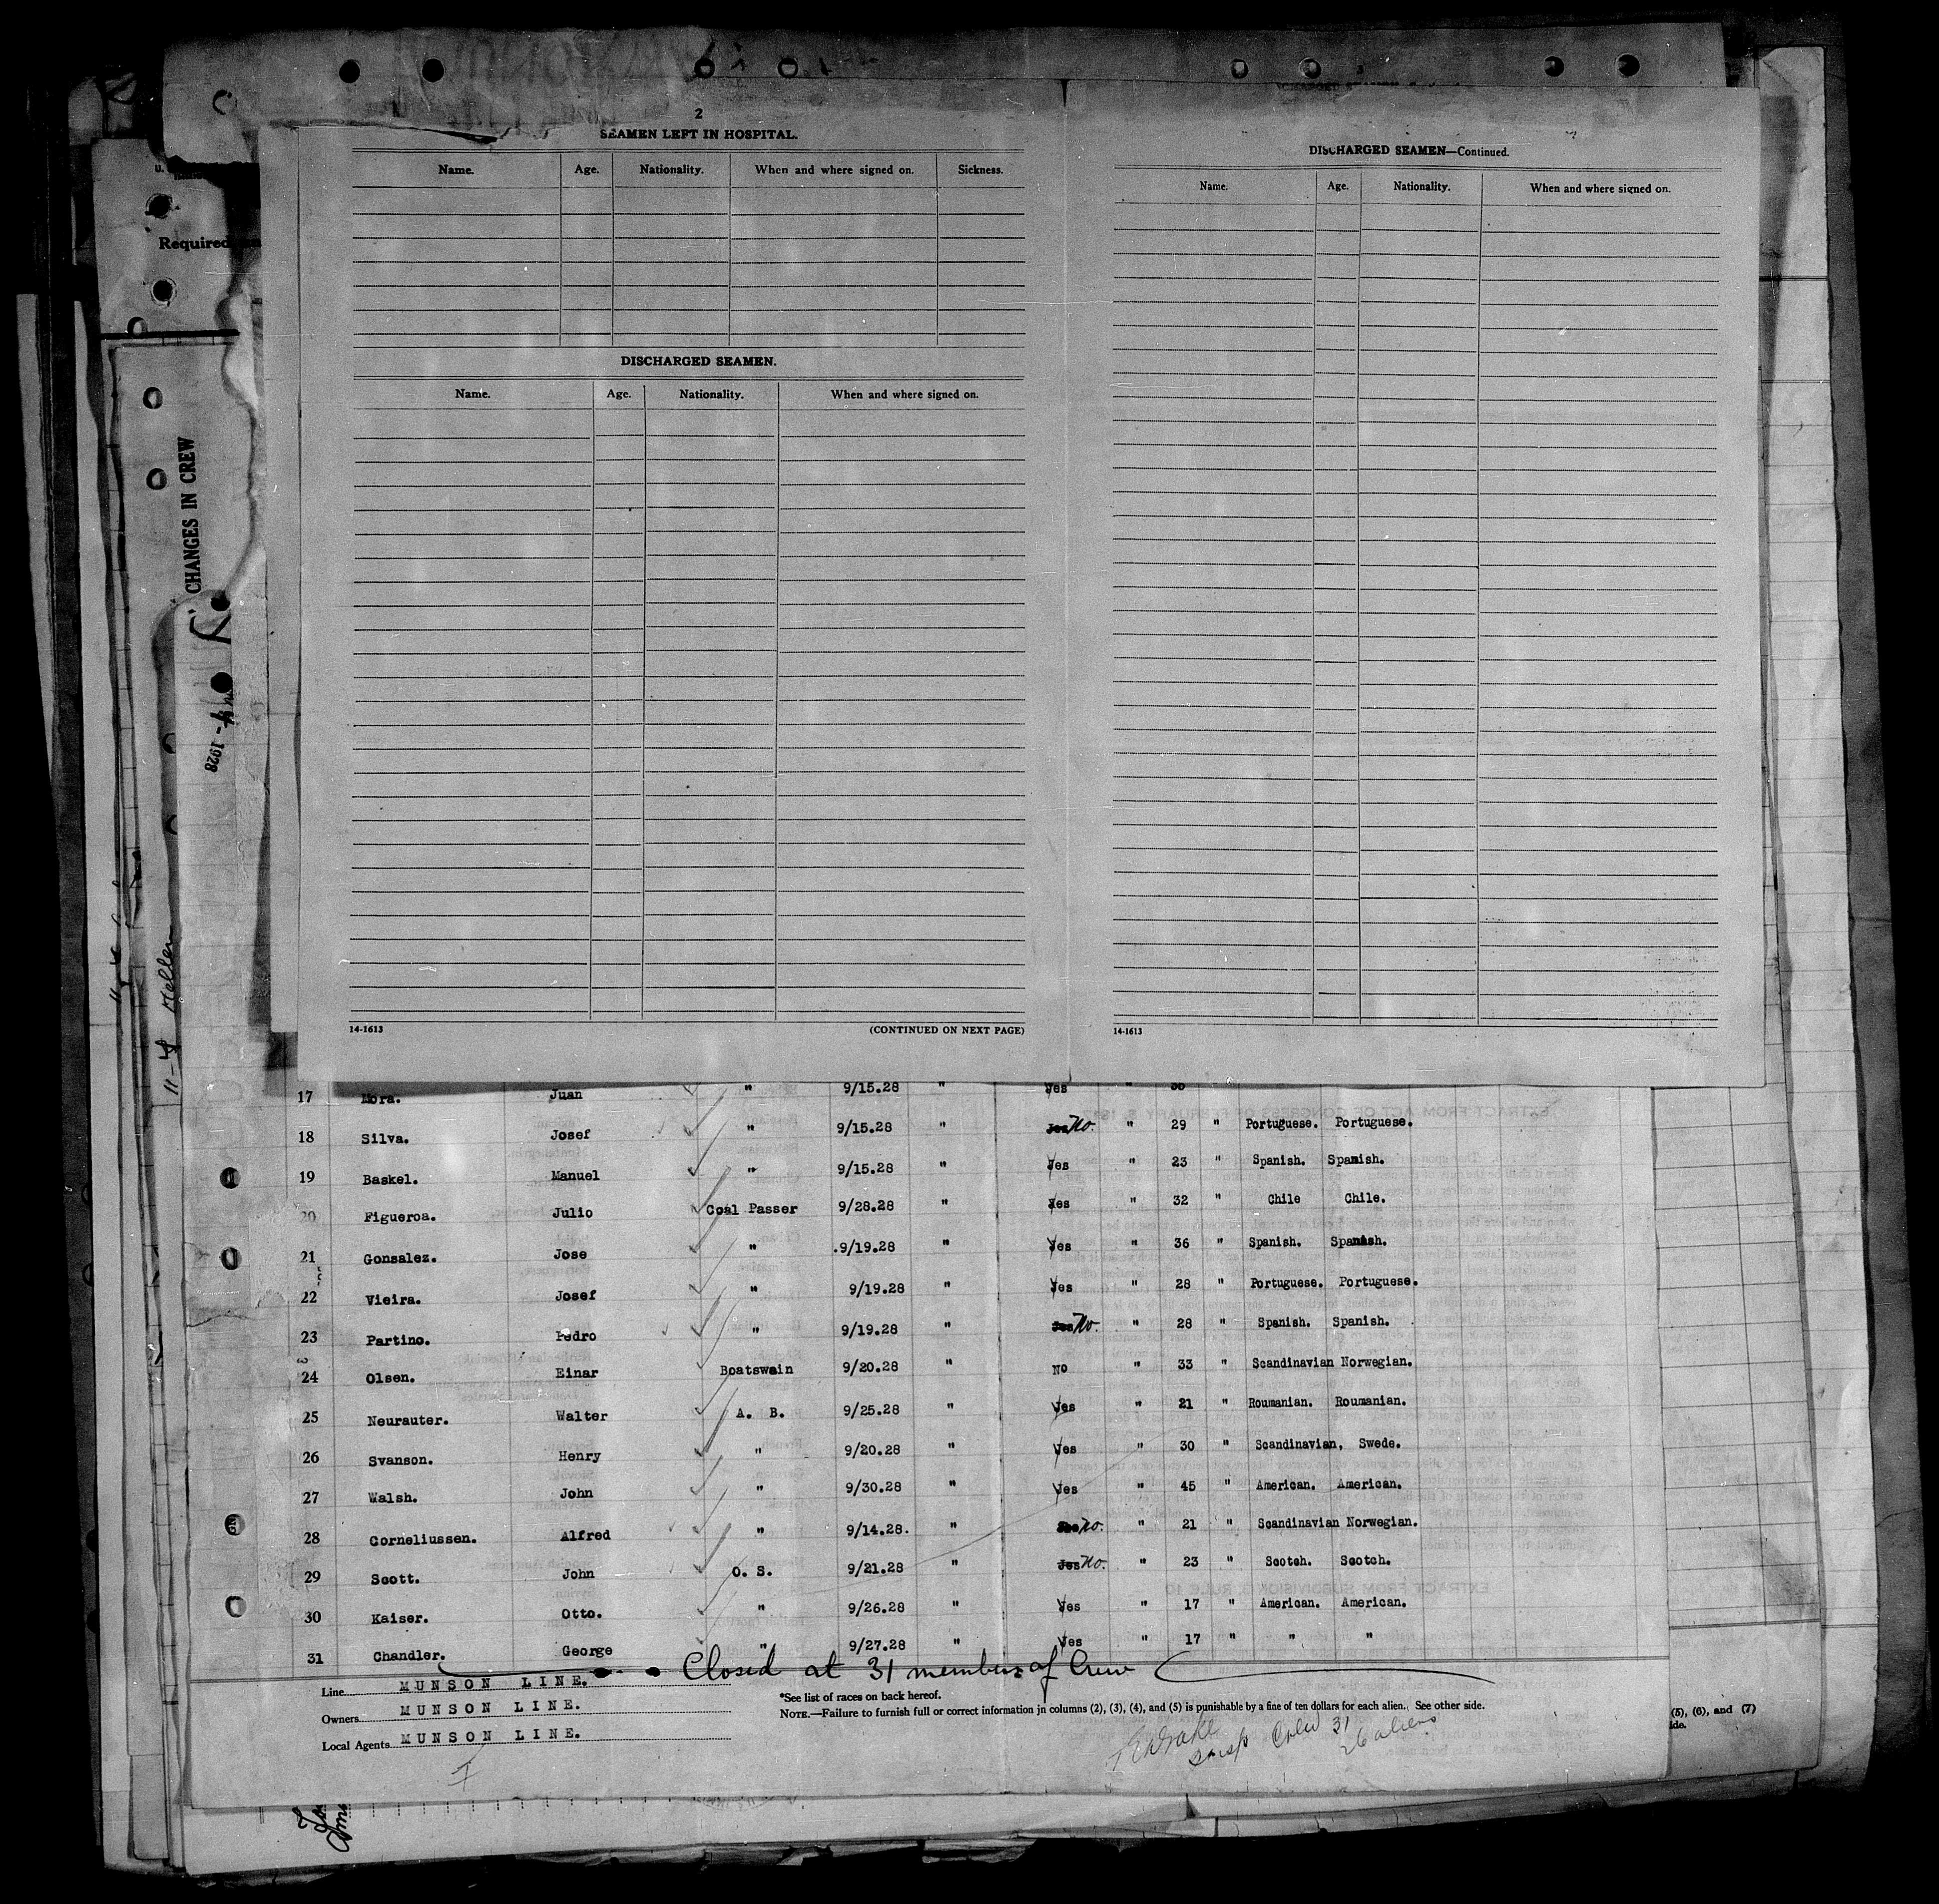 2
SEAMEN LEFT IN HOSPITAL.
Name. Age. Nationality. When and where signed on. Sickness.
DISCHARGED SEAMEN.
Name. Age. Nationality. When and where signed on.
14-1613 (CONTINUED ON NEXT PAGE)
DISCHARGED SEAMEN—Continued.
Name. Age. Nationality. When and where signed on.
14-1613
Required
CHANGES IN CREW
4-1928
11-4 Keller
17 Mora. Juan " 9/15.28 " Yes "
18 Silva. Josef " 9/15.28 " Yes No. " 29 " Portuguese. Portuguese.
19 Baskel. Manuel " 9/15.28 " Yes " 23 " Spanish. Spanish.
20 Figueroa. Julio Coal Passer 9/28.28 " Yes " 32 " Chile Chile.
21 Gonsalez. Jose " .9/19.28 " Yes " 36 " Spanish. Spanish.
22 Vieira. Josef " 9/19.28 " Yes " 28 " Portuguese. Portuguese.
23 Partino. Pedro " 9/19.28 " Yes No. " 28 " Spanish. Spanish.
24 Olsen. Einar Boatswain 9/20.28 " No " 33 " Scandinavian Norwegian.
25 Neurauter. Walter A. B. 9/25.28 " Yes " 21 " Roumanian. Roumanian.
26 Svanson. Henry " 9/20.28 " Yes " 30 " Scandinavian, Swede.
27 Walsh. John " 9/30.28 " Yes " 45 " American. American.
28 Corneliussen. Alfred " 9/14.28. " Yes no. " 21 " Scandinavian Norwegian.
29 Scott. John O. S. 9/21.28 " Yes no. " 23 " Scotch. Scotch.
30 Kaiser. Otto. " 9/26.28 " Yes " 17 " American. American.
31 Chandler. George " 9/27.28 " Yes " 17 " " "
Closed at 31 members of Crew
Line MUNSON LINE.
Owners MUNSON LINE.
Local Agents MUNSON LINE.
*See list of races on back hereof.
NOTE.—Failure to furnish full or correct information in columns (2), (3), (4), and (5) is punishable by a fine of ten dollars for each alien. See other side.
Insp Crew 31
26 aliens
(5), (6), and (7)
ide.